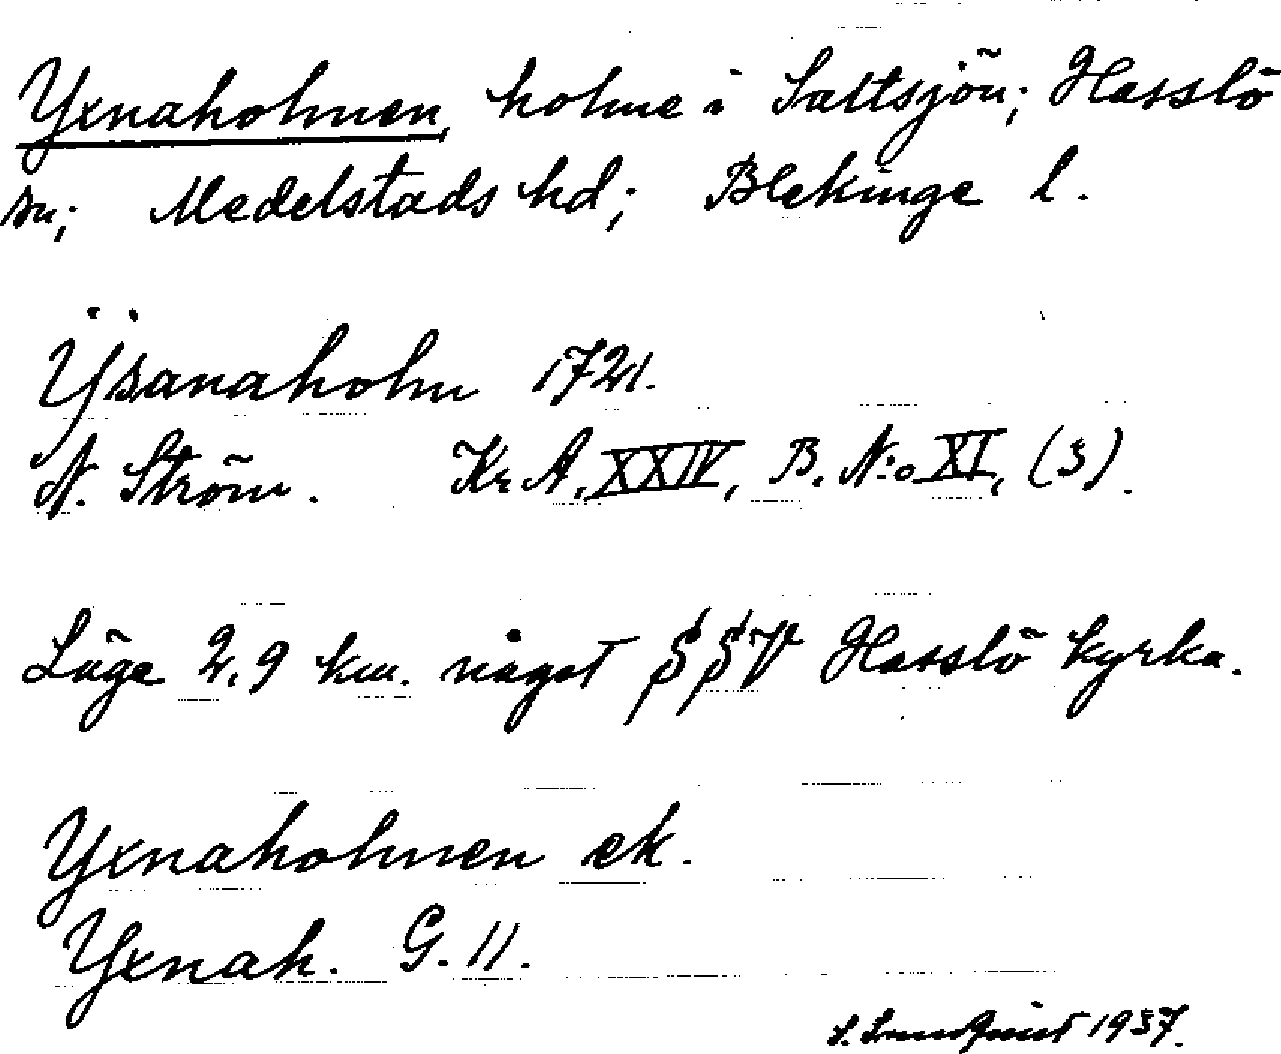 Yxnaholmen, holme i Saltsjön; Hasslö
sn; Medelstads hd; Blekinge l.
Ÿsanaholm 1721.
N. Ström. Kr. A, XXIV, B. N:o XI, (3).
Läge 2,9 km. något SSV Hasslö kyrka.
Yxnaholmen ek.
Yxnah. G. 11.
1937.